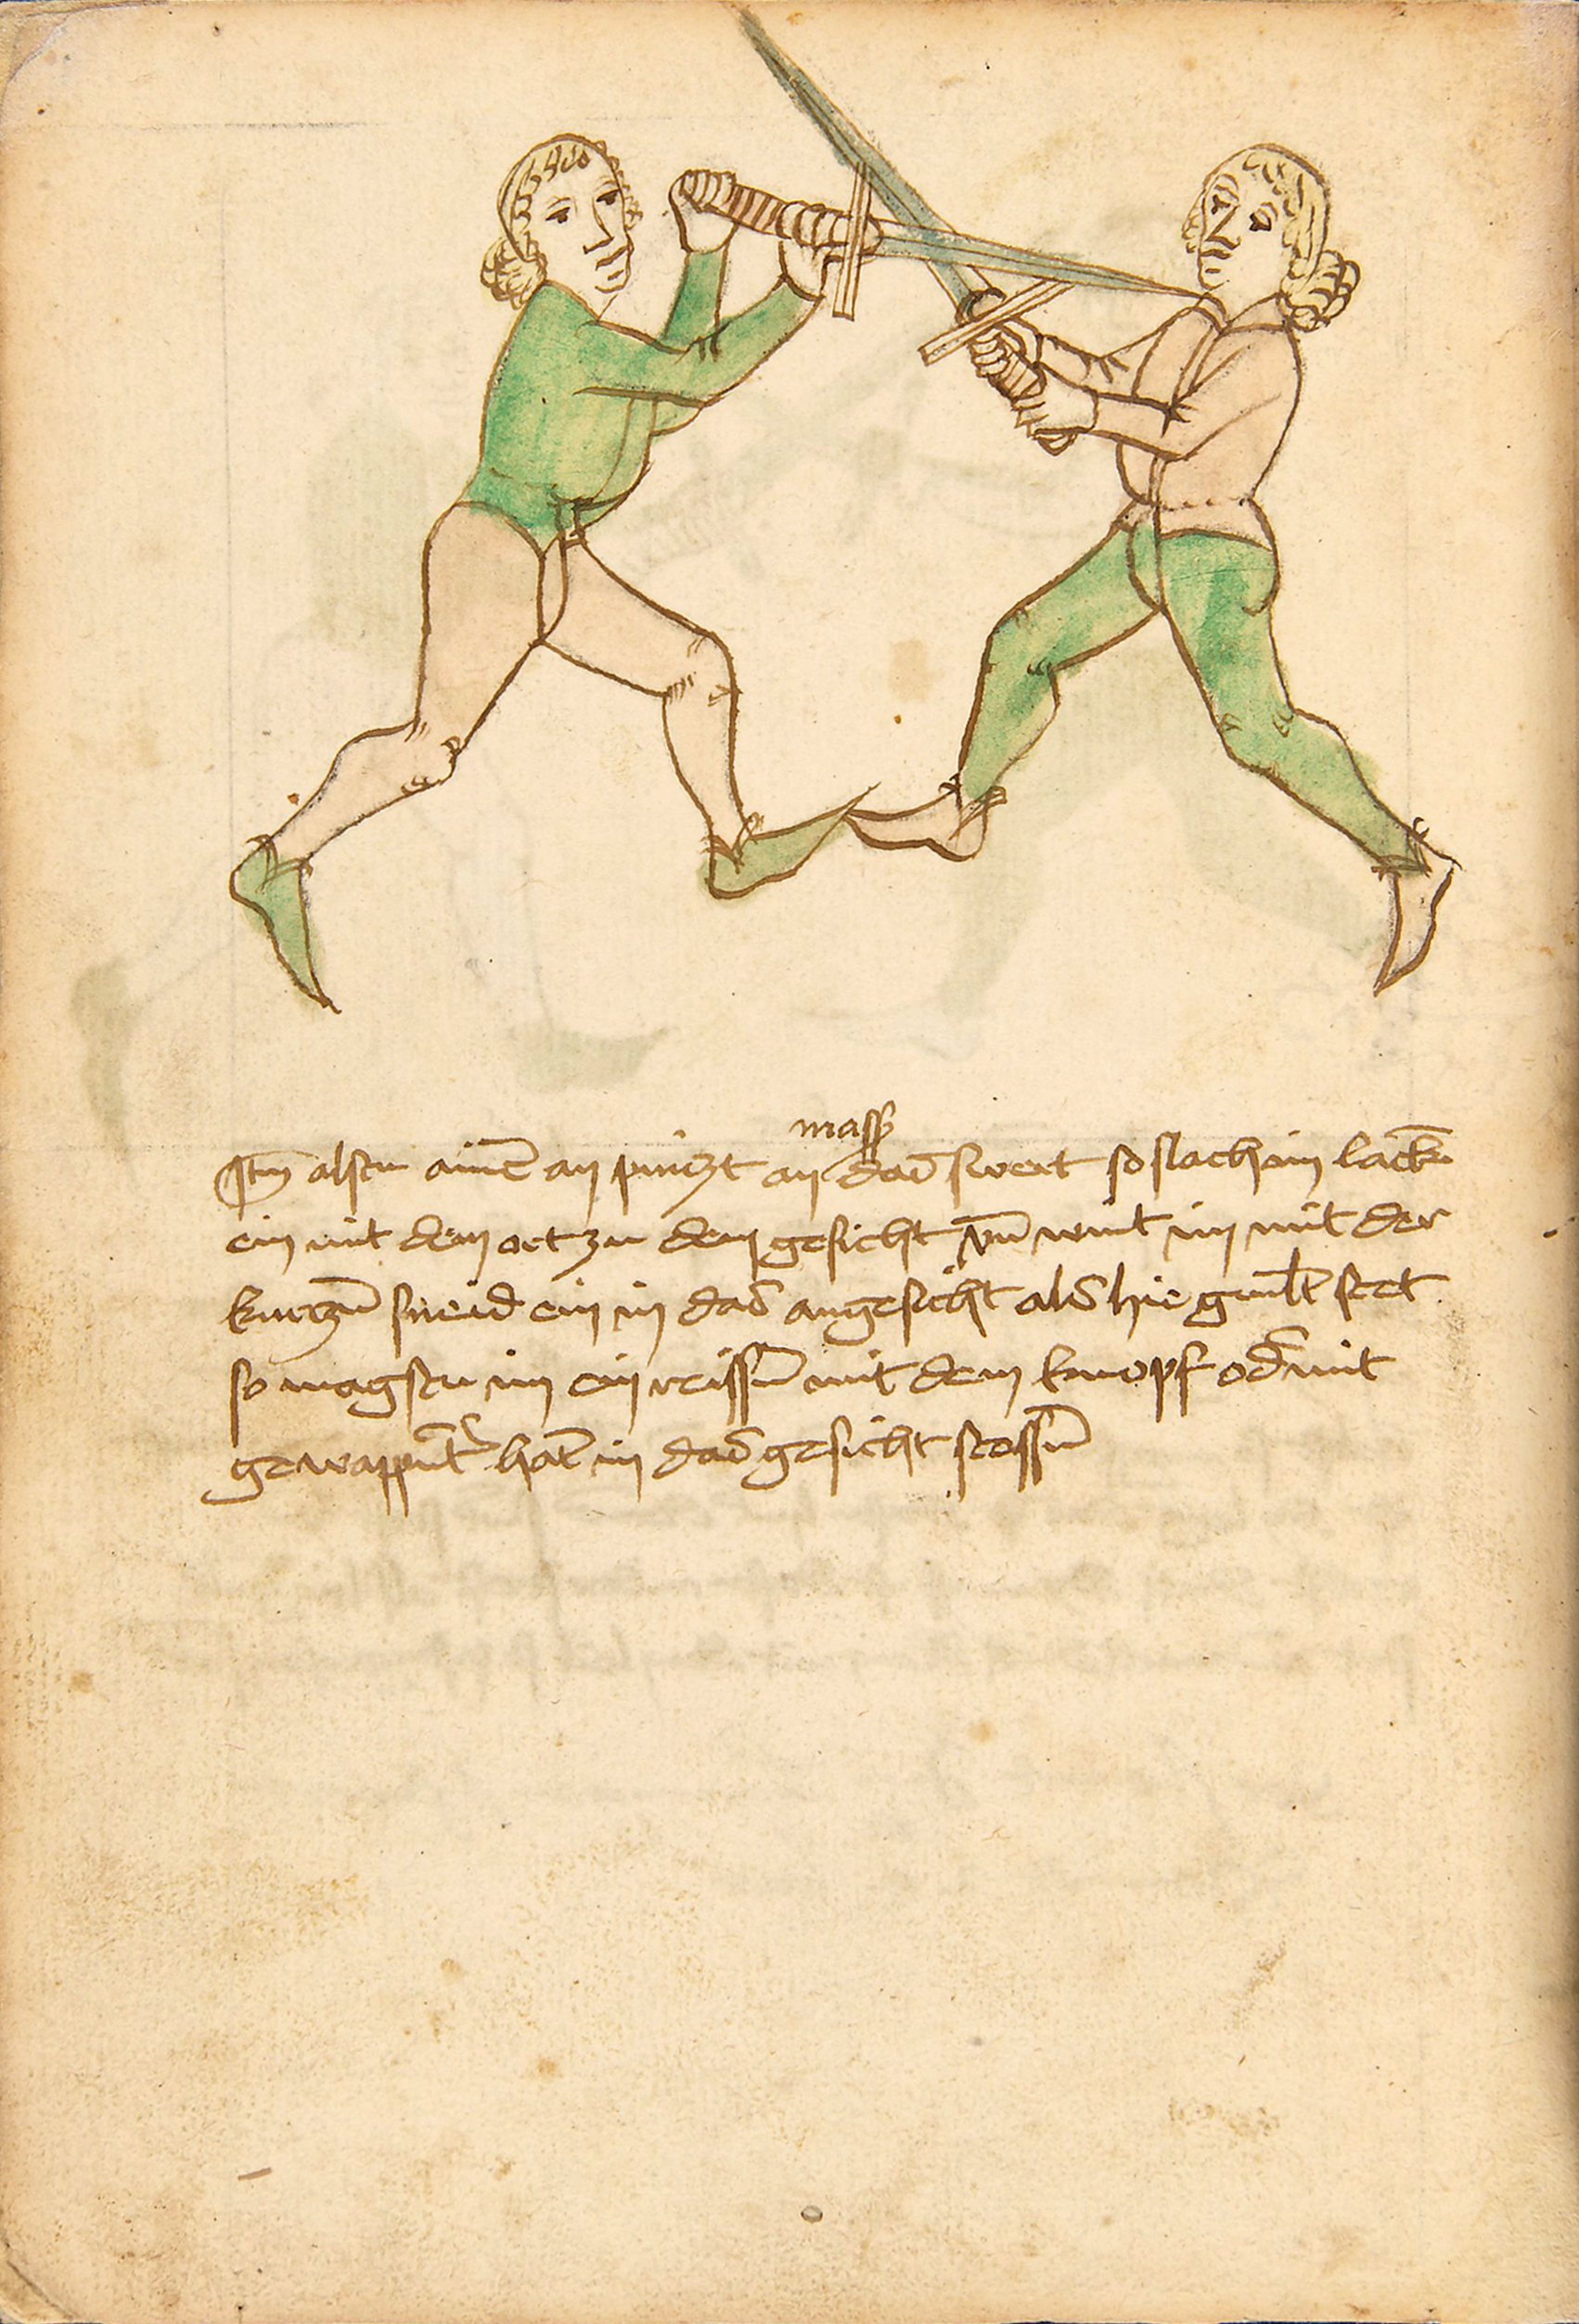 masß
Itm̄ alstu ainē an pintzt an daß swert so slach im lack̄
ein mit dem ort zu dem gesicht vn̄ wint im mit der
kurtzn̄ sneid ein in daß angesicht alß hie gemlt̄ stet
so magstu im ein reissn̄ mit dem knopf od̄ mit
gewappnt̄ hat̄ in daß gesicht stossn̄